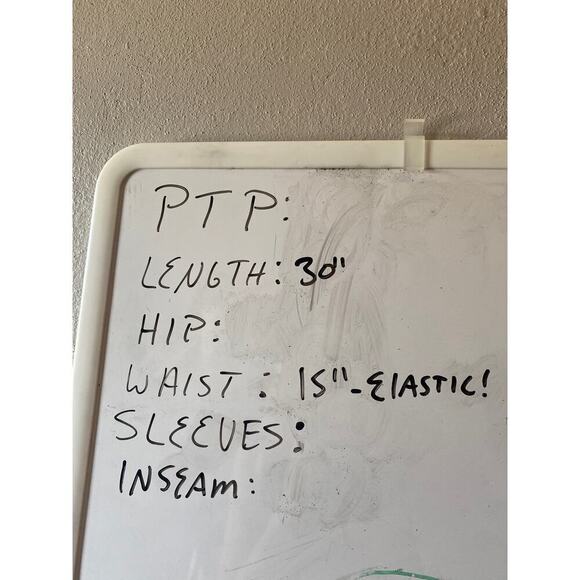 PTP:
LENGTH: 30"
HIP:
WAIST: 15"-ElASTIC!
SLEEVES:
INSEAM: